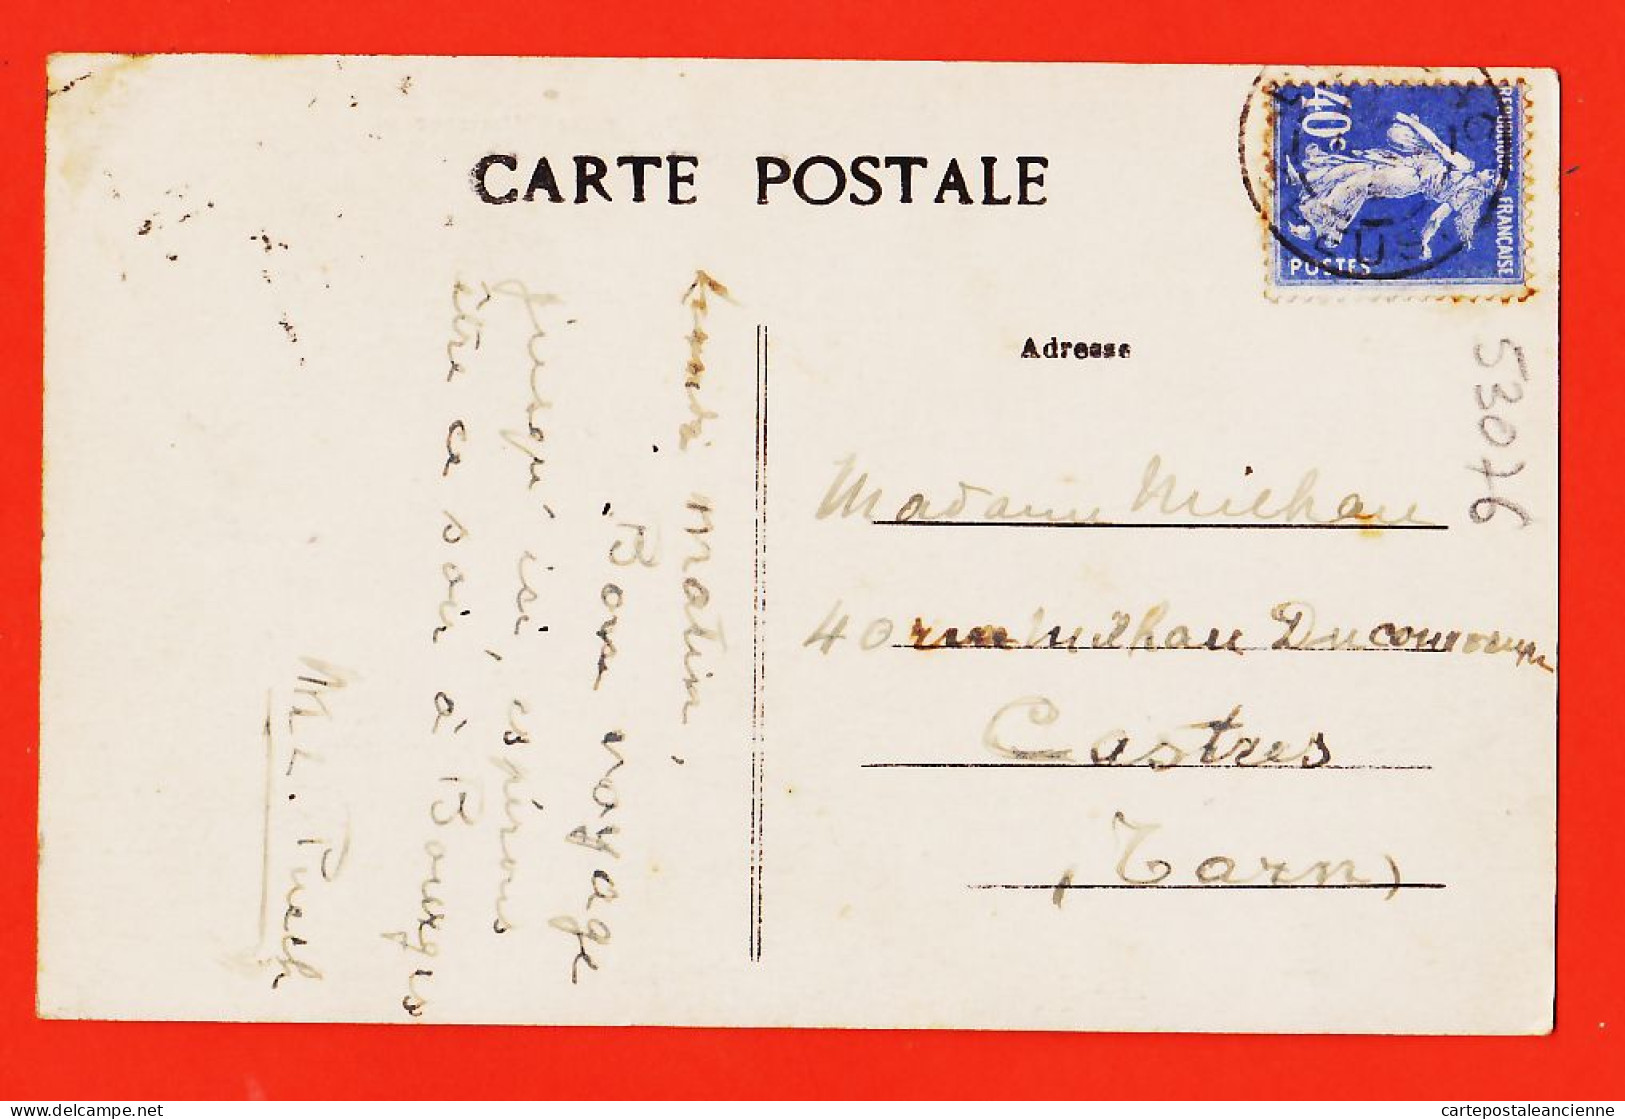 CARTE POSTALE
REPUBLIQUE FRANCAISE
40c
POSTES
Adresse
53076
Madame Milhau
40 rue Milhau Ducommun
Castres
(Tarn)
Lundi matin,
Bon voyage
jusqu'ici, espérons
être ce soir à Bourges
M L. Puech
delcampe.net
cartepostaleancienne